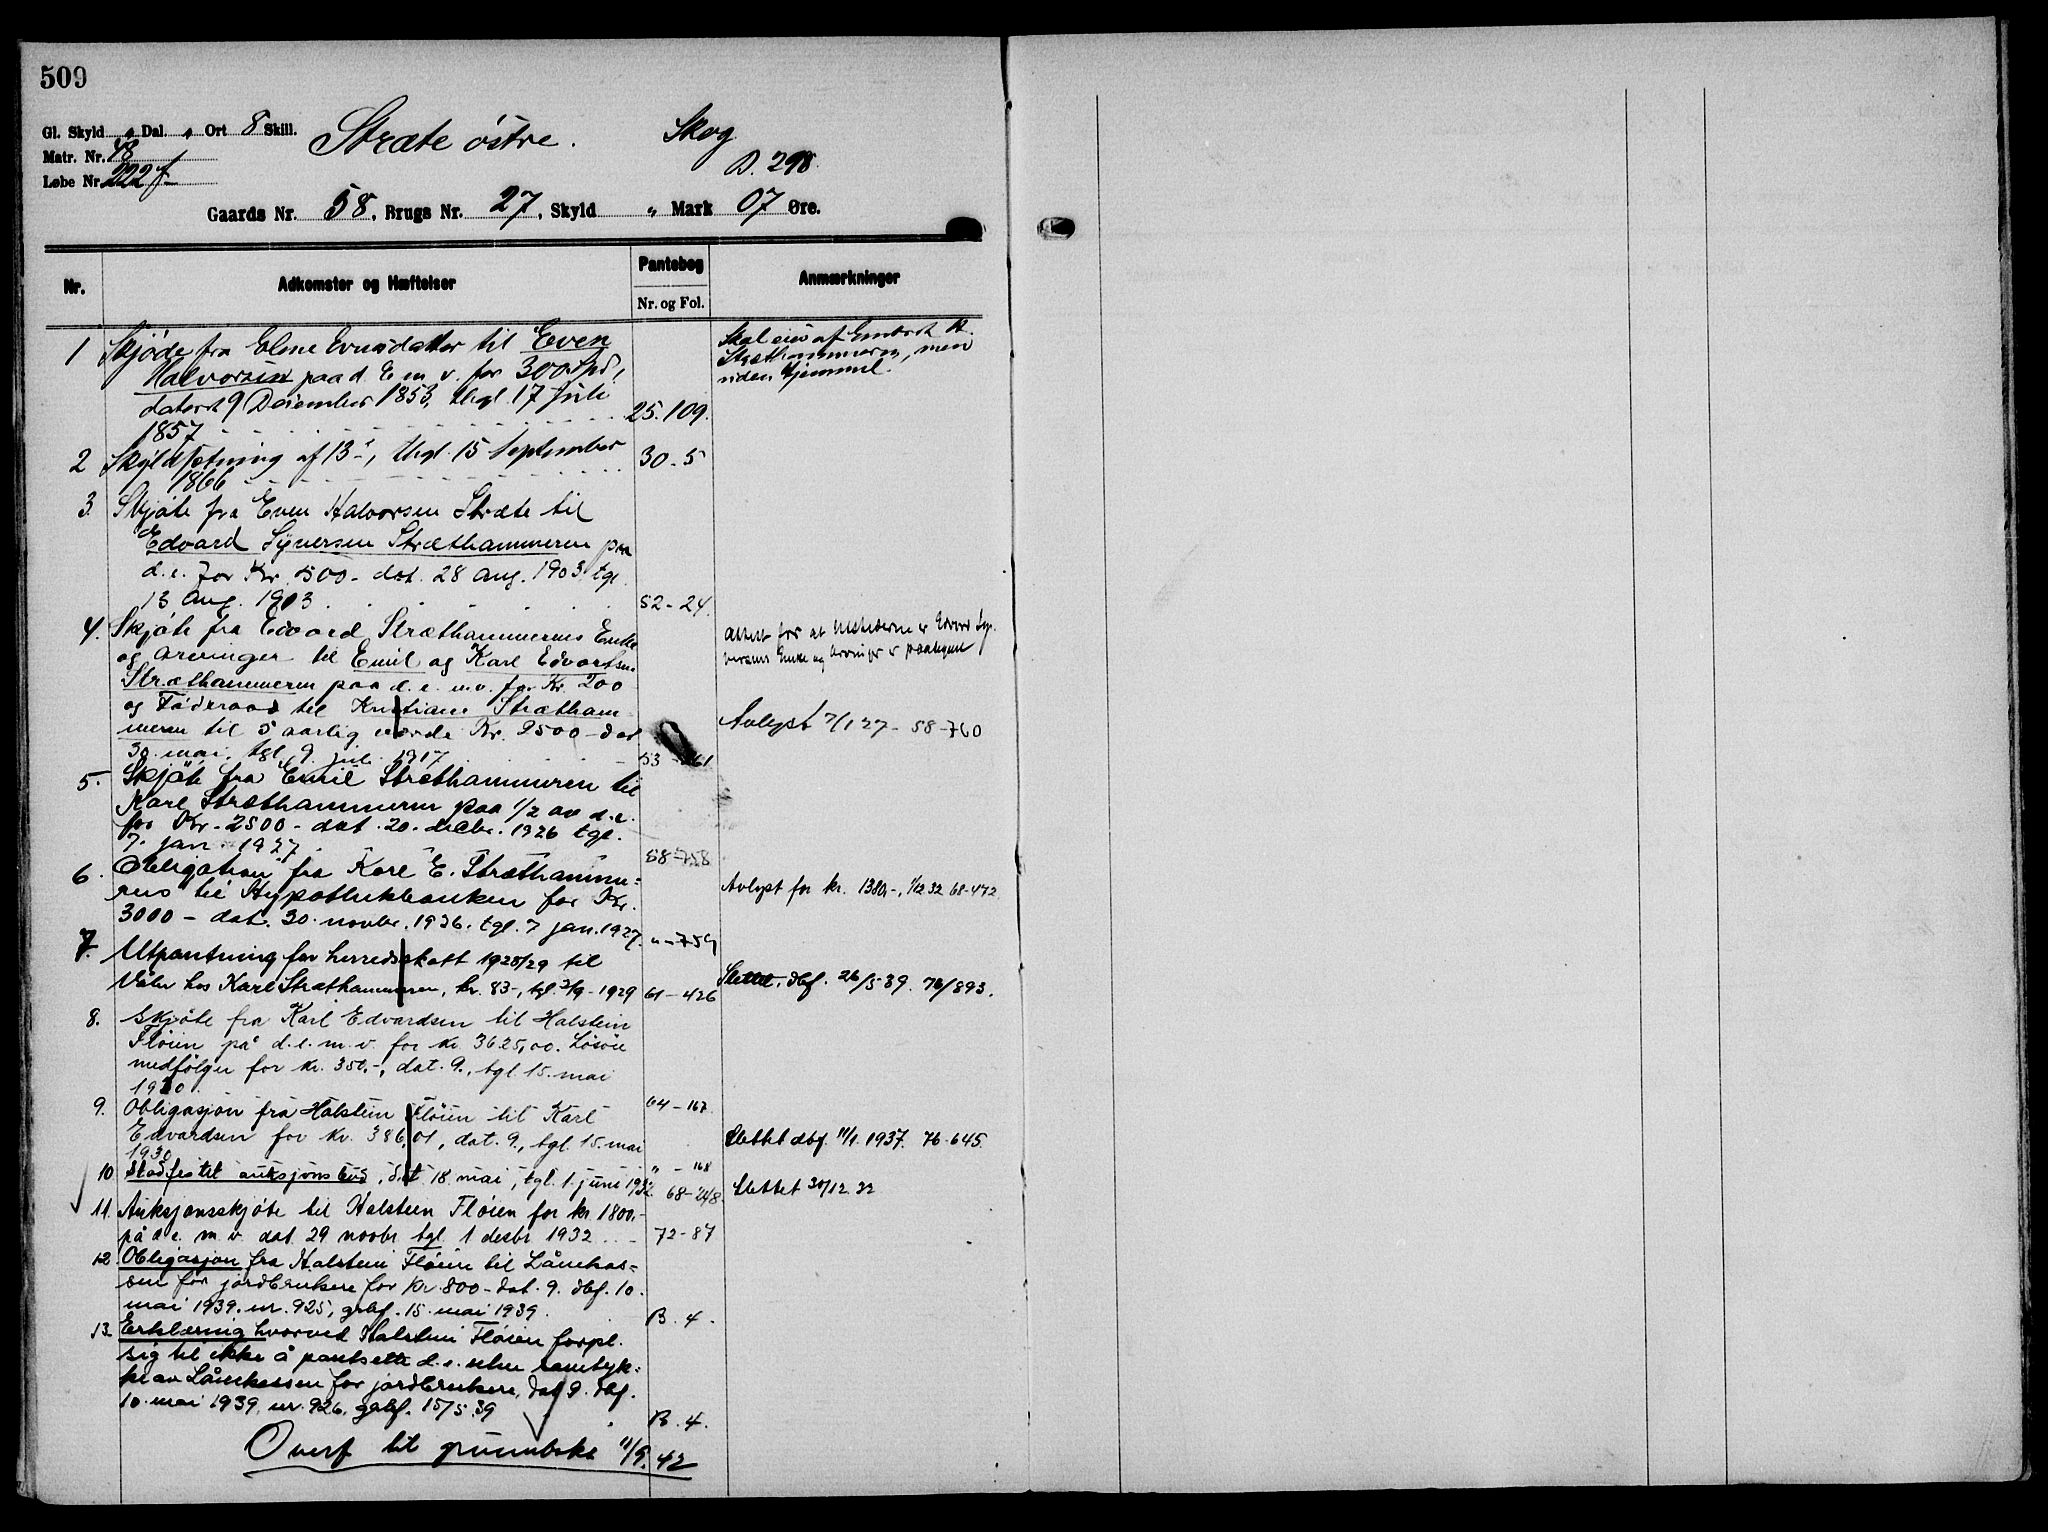 509
Gl. Skyld " Dal. " Ort 8 Skill.
Stræte østre.
Skog
Matr. Nr. 48
Løbe Nr. 222 f
D. 298.
Gaards Nr. 58, Brugs Nr. 27, Skyld " Mark 07 Øre.
Nr.
Adkomster og Hæftelser
Pantebog
Nr. og Fol.
Anmærkninger
1 Skjøde fra Eline Evensdatter til Even
Halvorsen paa d. E m. v. for 300 Spd,
datert 9 Desember 1853, thgl. 17 Juli
1857 25. 109.
Skal eies af Embret
Stræthammeren, men
uden Hjemmel.
2 Skyldsetning af 13, thgl. 15 September
1866 30 - 5
3. Skjøte fra Even Halvorsen Stræte til
Edvard Syversen Stræthammeren paa
d. e. for Kr. 500 - dat. 28 Aug. 1903 tgl.
13 Aug. 1913 52 - 24.
4. Skjøte fra Edvard Stræthammerens Enke
og Arvinger til Emil og Karl Edvartsen
Stræthammeren paa d. e. m. v. for Kr. 200
og Føderaad til Kristiane Strætham-
meren til 5 aarlig værde Kr. 2500 - dat
30. mai. tgl. 9. juli 1917 53 - 61
Attest for at Utstederne er Edvard Sy-
versens Enke og Arvinger er paategnet
Avlyst 7/1 27 - 58 - 760
5. Skjøte fra Emil Stræthammeren til
Karl Stræthammeren paa 1/2 av d. e.
for Kr. 2500 - dat. 20. decbr. 1926 tgl.
7. jan. 1927 58 - 758
6. Obligation fra Karl E. Stræthamme=
ren til Hypothekbanken for Kr.
3000 - dat. 30. novbr. 1926. tgl. 7 jan. 1927. " - 759
Avlyst for kr. 1380,-, 1/12 32 68-472.
7. Utpantning for herredsskatt 1928/29 til
Våler hos Karl Stræthammeren, kr. 83-, tgl. 2/9 - 1929 61 - 426
Slettet. dbf. 26/5 - 39. 78/893.
8. Skjøte fra Karl Edvardsen til Halstein
Fløien på d. e. m. v. for kr. 3625,00. Løsøre
medfølger for kr. 350,-, dat. 9., tgl. 15. mai
1930. 64 - 167.
9. Obligasjon fra Halstein Fløien til Karl
Edvardsen for kr. 386,01, dat. 9., tgl. 15. mai
1930 " - 168
Slettet dbf. 11/1. 1937. 76 - 645.
10 Stadfestet auksjonsbud, dat 18. mai, tgl. 1. juni 1932. 68 - 248.
Slettet 30/12. 32
11. Auksjonsskjøte til Halstein Fløien for kr. 1800,-
på d. e. m. v. dat. 29 novbr. tgl. 1 desbr. 1932 72 - 87
12 Obligasjon fra Halstein Fløien til Lånekas=
sen for jordbrukere for kr 800 - dat. 9. dbf. 10.
mai 1939. nr. 925, grbf. 15. mai 1939. B. 4.
13. Erklæring hvorved Halstein Fløien forpl.
sig til ikke å pantsette d. e. uten samtyk=
ke av Lånekassen for jordbrukere, dat 9. dbf.
10. mai 1939. nr. 926. grbf. 15/5 39 B. 4.
Overf til grunnboka 11/9. 42